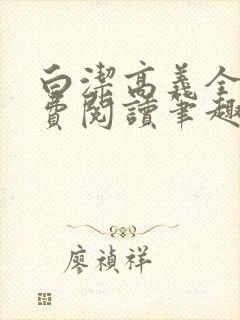 白潔高義全
費閱讀筆趣
廖禎祥